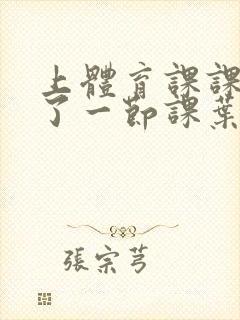 上體育課課
了一節課葉
張宗芎